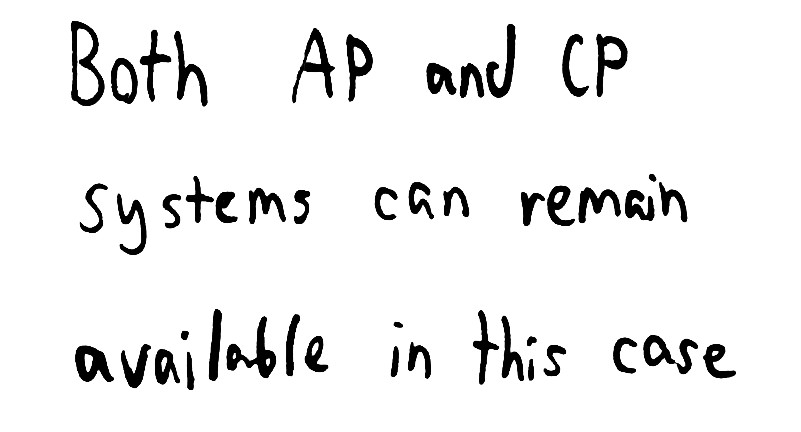 Both AP and CP
systems can remain
available in this case